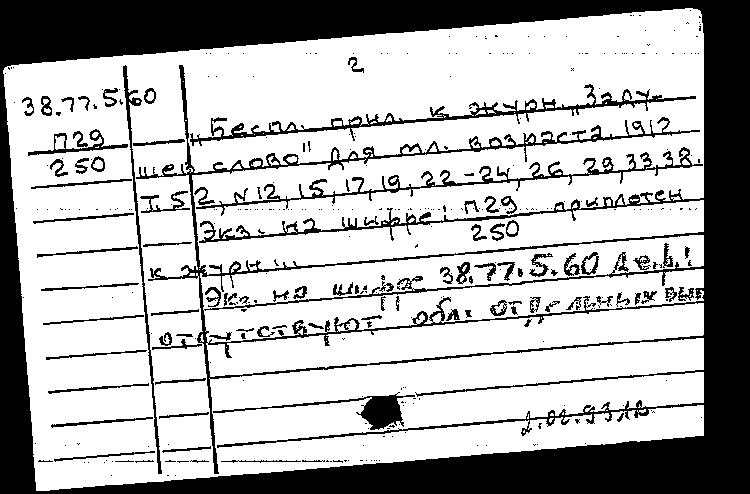 2
38.77.5.60
П29
250
„Беспл. прил. к журн. „Заду-
шев слово" для мл. возраста. 1912
Т. 52, N 12, 15, 17, 19, 22-24, 26, 29, 33, 38.
Экз. на шифре: П29
250 приплетен
к журн...
Экз. на шифре 38.77.5.60 деф.:
отсутствуют обл. отдельных вып
2.02.93